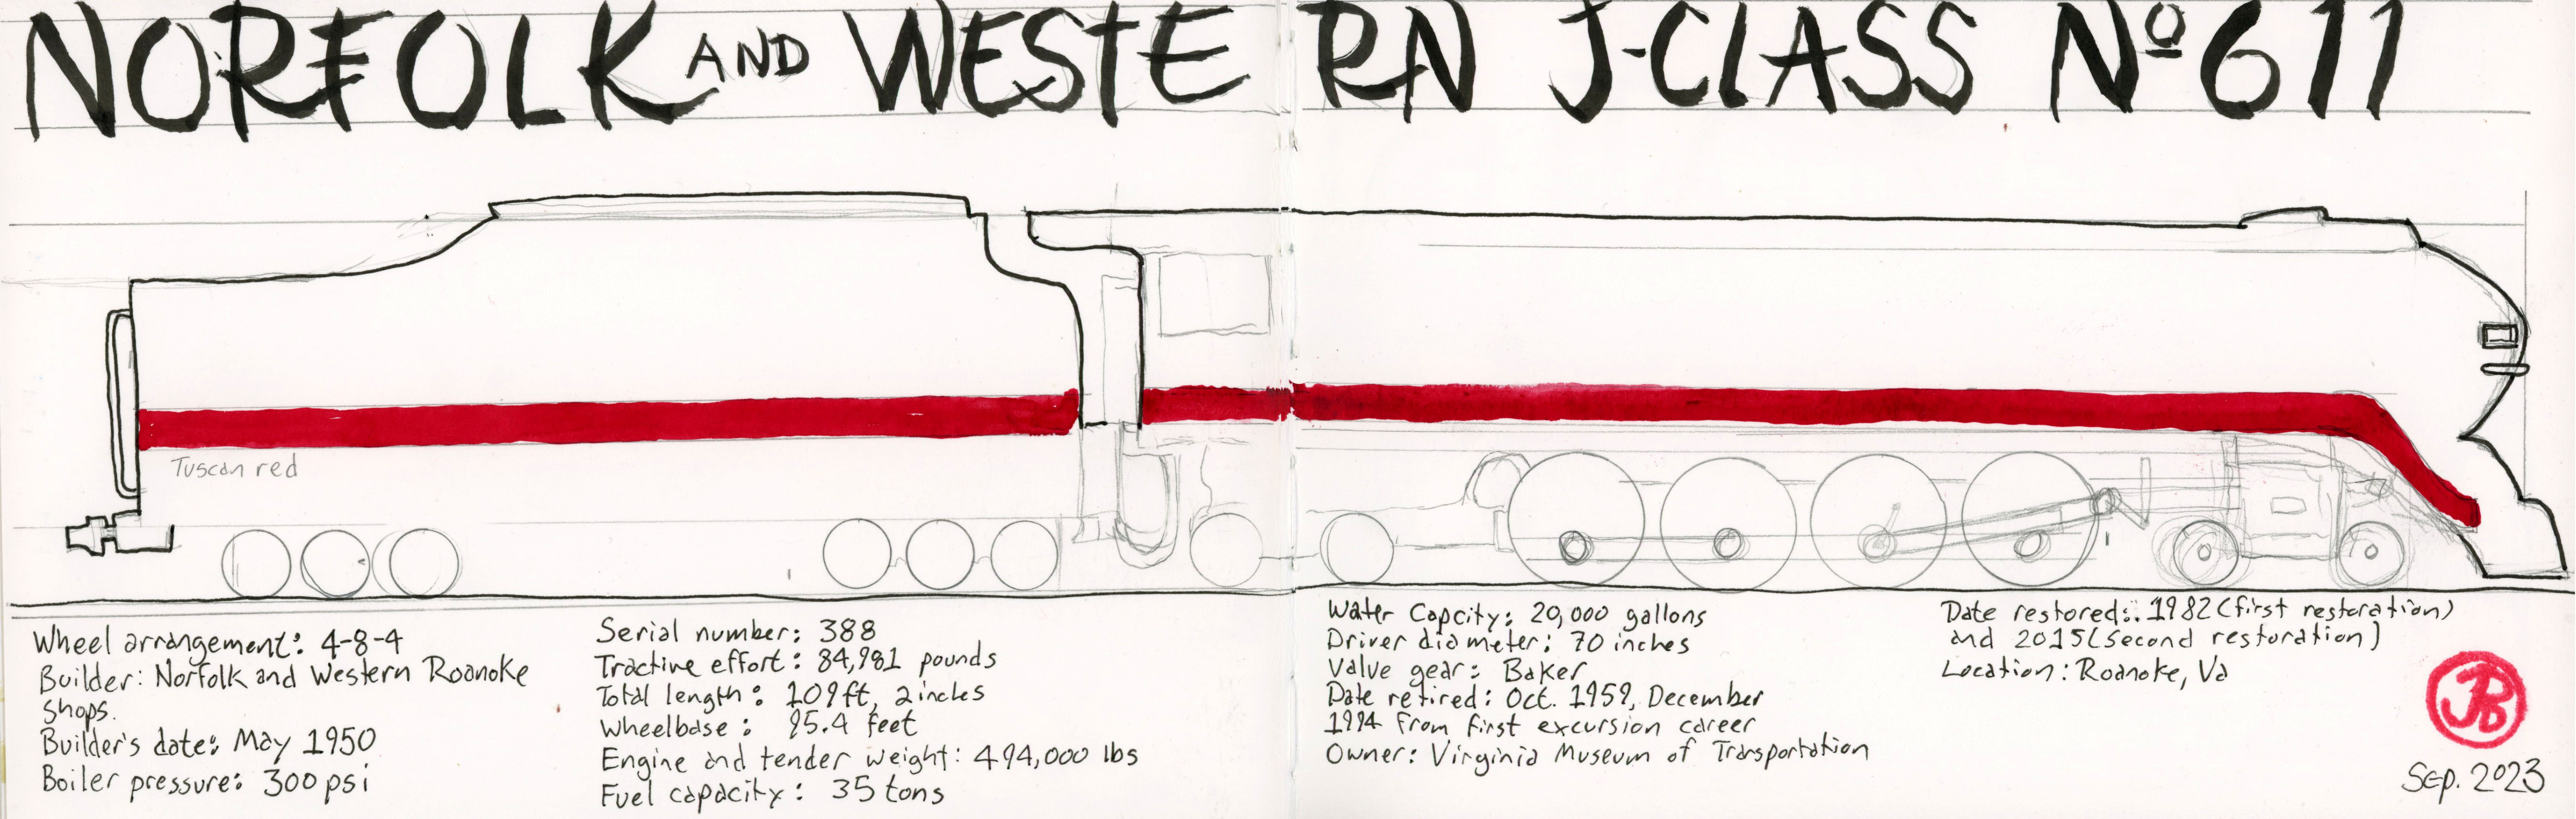 NORFOLK AND WESTERN J-CLASS Nº 611
Tuscan red
Wheel arrangement: 4-8-4
Builder: Norfolk and Western Roanoke
shops.
Builder's date: May 1950
Boiler pressure: 300 psi
Serial number: 388
Tractive effort: 84,981 pounds
Total length: 109ft, 2 inches
Wheelbase: 95.4 feet
Engine and tender weight: 494,000 lbs
Fuel capacity: 35 tons
Water Capcity: 20,000 gallons
Driver diameter: 70 inches
Valve gear: Baker
Date retired: Oct. 1959, December
1994 from first excursion career
Owner: Virginia Museum of Transportation
Date restored:. 1982 (first restoration)
and 2015 (second restoration)
Location: Roanoke, Va
JB
Sep. 2023